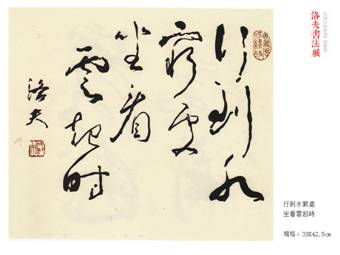 行到水
窮處
坐看
雲起時
洛夫
洛夫書法展
行到水窮處
坐看雲起時
規格：39X42.5cm